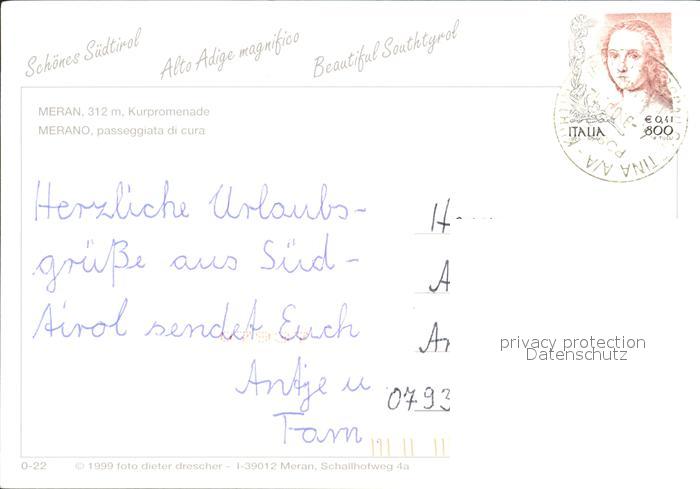 Schönes Südtirol Alto Adige magnifico Beautiful Southtyrol
MERAN, 312 m, Kurpromenade
MERANO, passeggiata di cura
€ 0,41
ITALIA 800
Herzliche Urlaubs-
grüße aus Süd-
tirol sendet Euch
Antje u
Fam
H
A
Ar
0793
privacy protection
Datenschutz
0-22 © 1999 foto dieter drescher - I-39012 Meran, Schallhofweg 4a